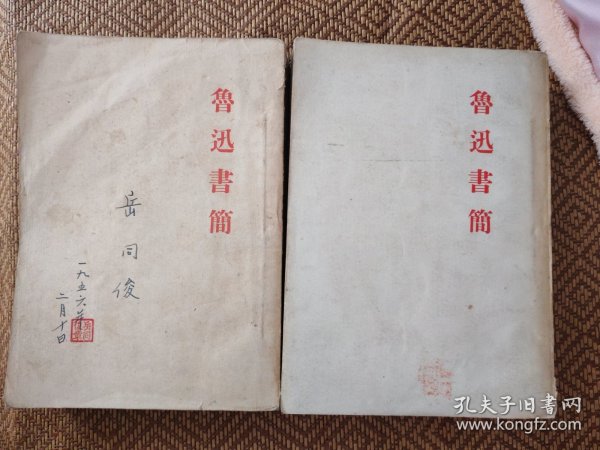 魯迅書簡
岳同俊
一九五六年
二月十日
魯迅書簡
孔夫子旧书网
www.kongfz.com